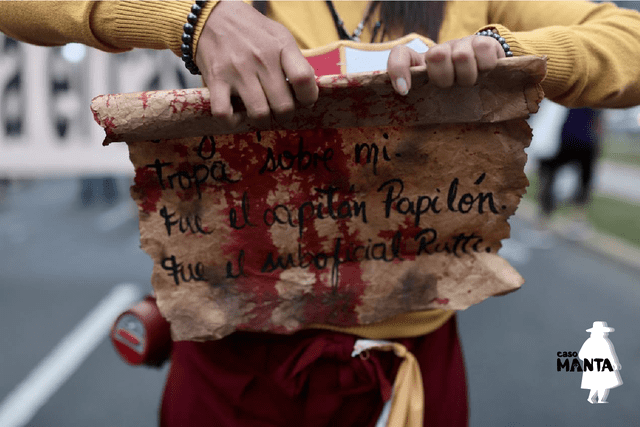 sobre mi
tropa sobre mi.
Fue el capitán Papilón.
Fue el suboficial Rutti.
caso
MANTA